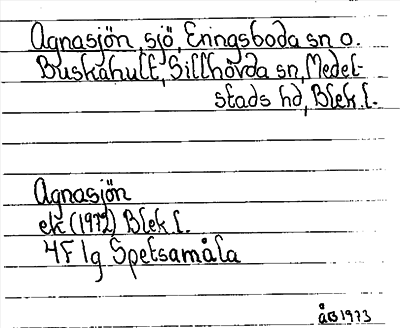 Agnasjön, sjö, Eringsboda sn o.
Buskahult, Sillhövda sn, Medel-
stads hd, Blek. l.
Agnasjön
ek (1972) Blek l.
4F 1g Spetsamåla
åB 1973